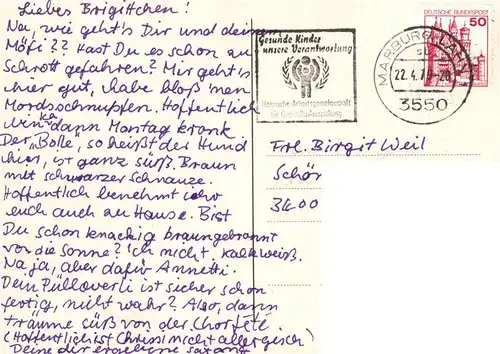 Liebes Brigittchen!
Na, wie geht's Dir und deinem
Möfi?? Hast Du es schon zu
Schrott gefahren? Mir geht's
hier gut, habe bloß 'nen
Mordsschnupfen. Hoffentlich
bin ka dann Montag krank
Der "Bolle, so heißt der Hund
hier, ist ganz süß. Braun
mit schwarzer Schnauze.
Hoffentlich benehmt ihr
euch auch zu Hause. Bist
Du schon knackig braungebrannt
von die Sonne? Ich nicht. kalkweiß.
Na ja, aber dafür Annetti.
Dein Pülloverli ist sicher schon
fertig, nicht wahr? Also, dann
träume süß von der Chorfete.
(Hoffentlich ist Chrissi nicht allergisch)
Deine dir ergebene
Gesunde Kinder
unsere Verantwortung
Hessische Arbeitsgemeinschaft
für Gesundheitserziehung
MARBURG, LAHN
22.4.79-20
3550
DEUTSCHE BUNDESPOST
50
Frl. Birgit Weil
Schö
3400